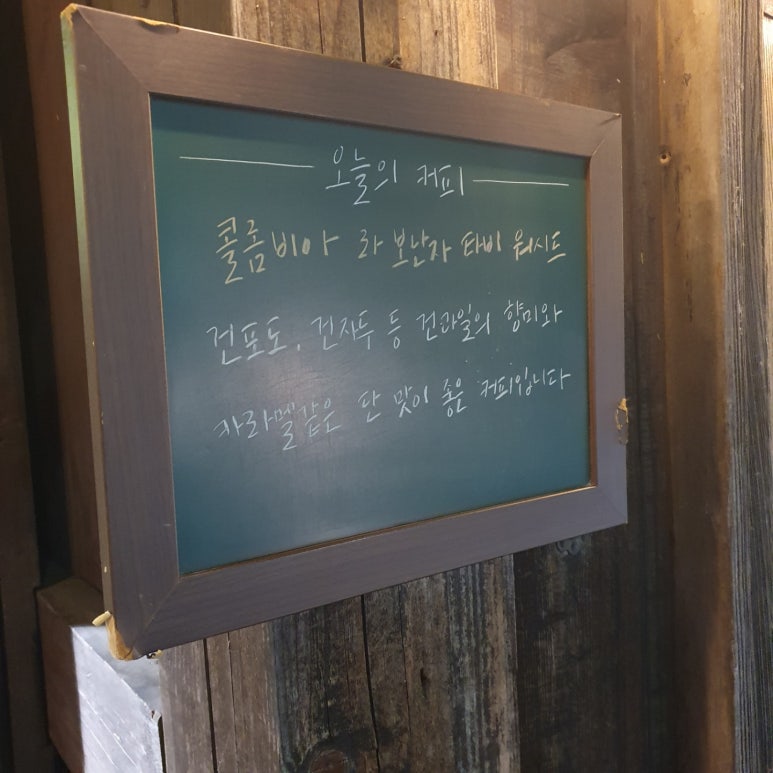 오늘의 커피
콜롬비아 라 보난자 타비 워시드
건포도, 건자두 등 건과일의 향미와
카라멜같은 단 맛이 좋은 커피입니다